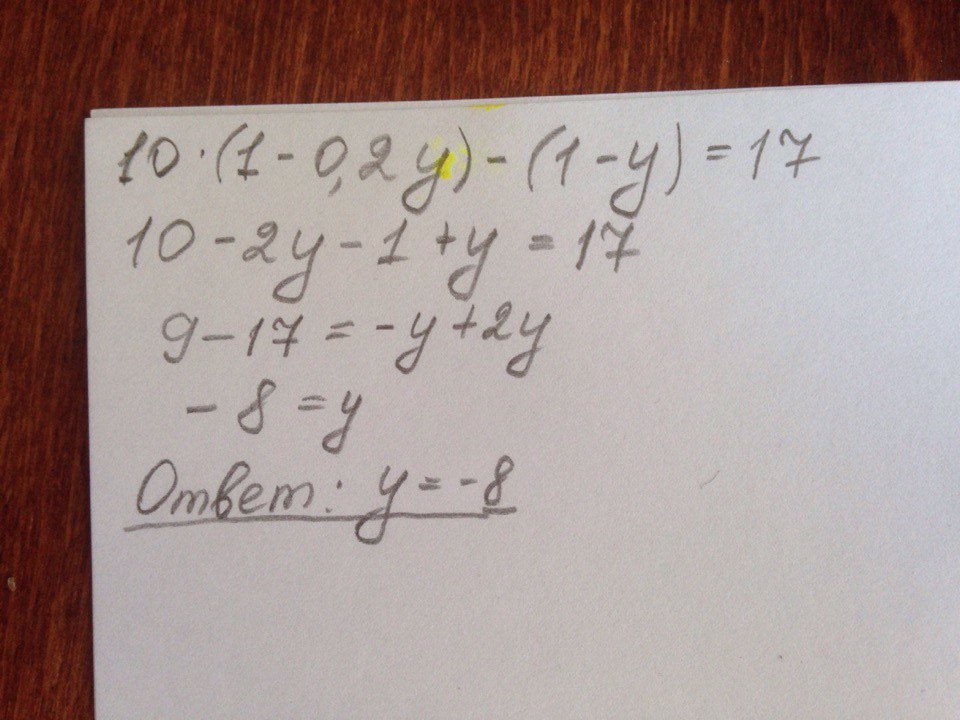 10·(1-0,2y)-(1-y)=17
10-2y-1+y=17
9-17=-y+2y
-8=y
Ответ: y=-8